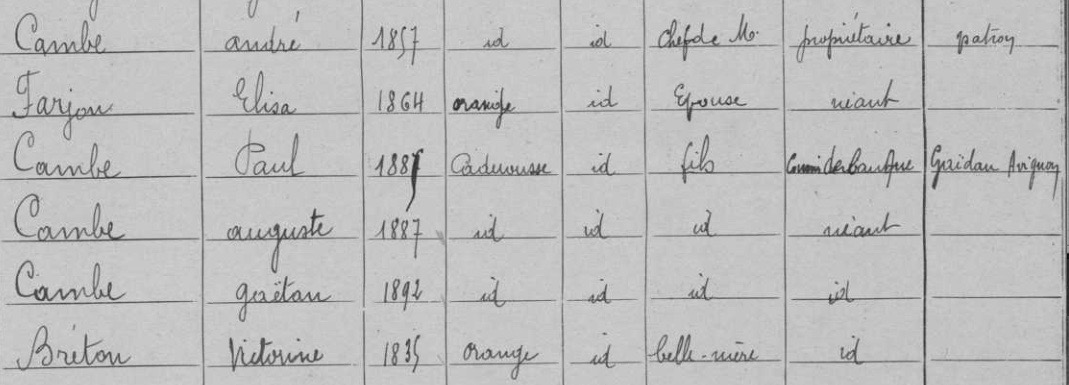 Cambe andré 1857 id id chef de M. propriétaire patron
Farjon Elisa 1864 orange id Epouse néant
Cambe Paul Caderousse id fils Commi de banque Avignon
Cambe auguste 1887 id id id néant
Cambe gaëtan 1892 id id id id
Bréton Victorine 1835 orange id belle-mère id